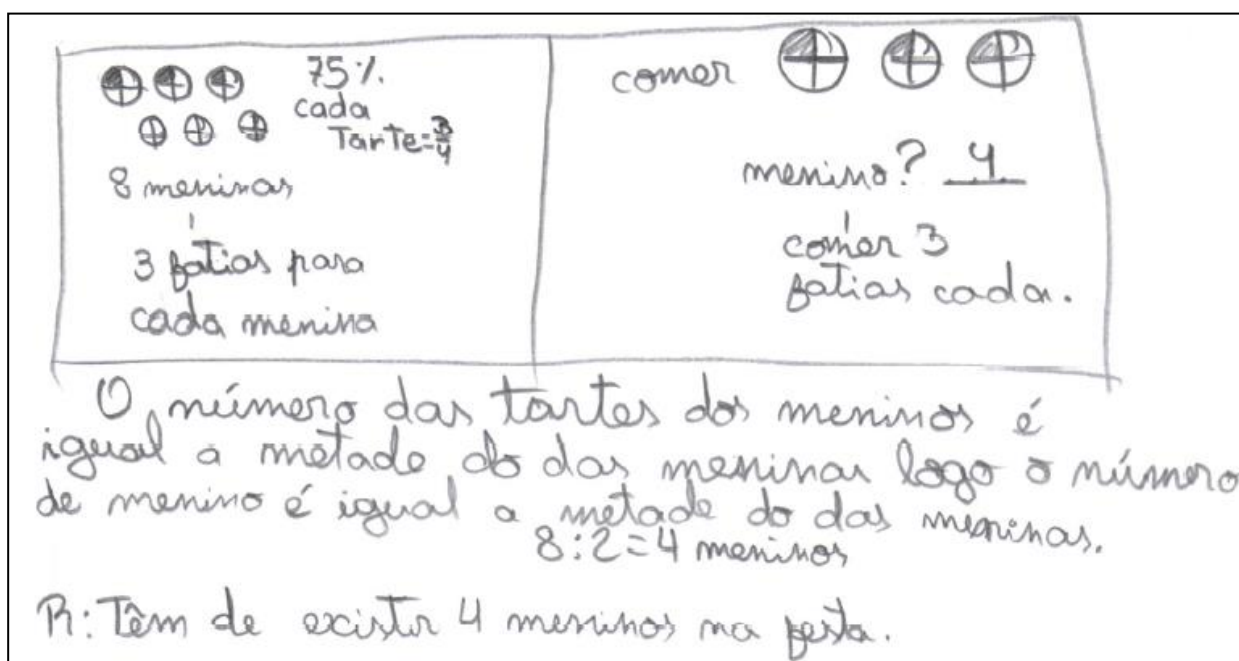 75%.
cada
Tarte=3/4
8 meninas
3 fatias para
cada menina
comer
menino? 4
comer 3
fatias cada.
O número das tartes dos meninos é
igual a metade do das meninas logo o número
de menino é igual a metade do das meninas.
8:2=4 meninos
R: Têm de existir 4 meninos na festa.